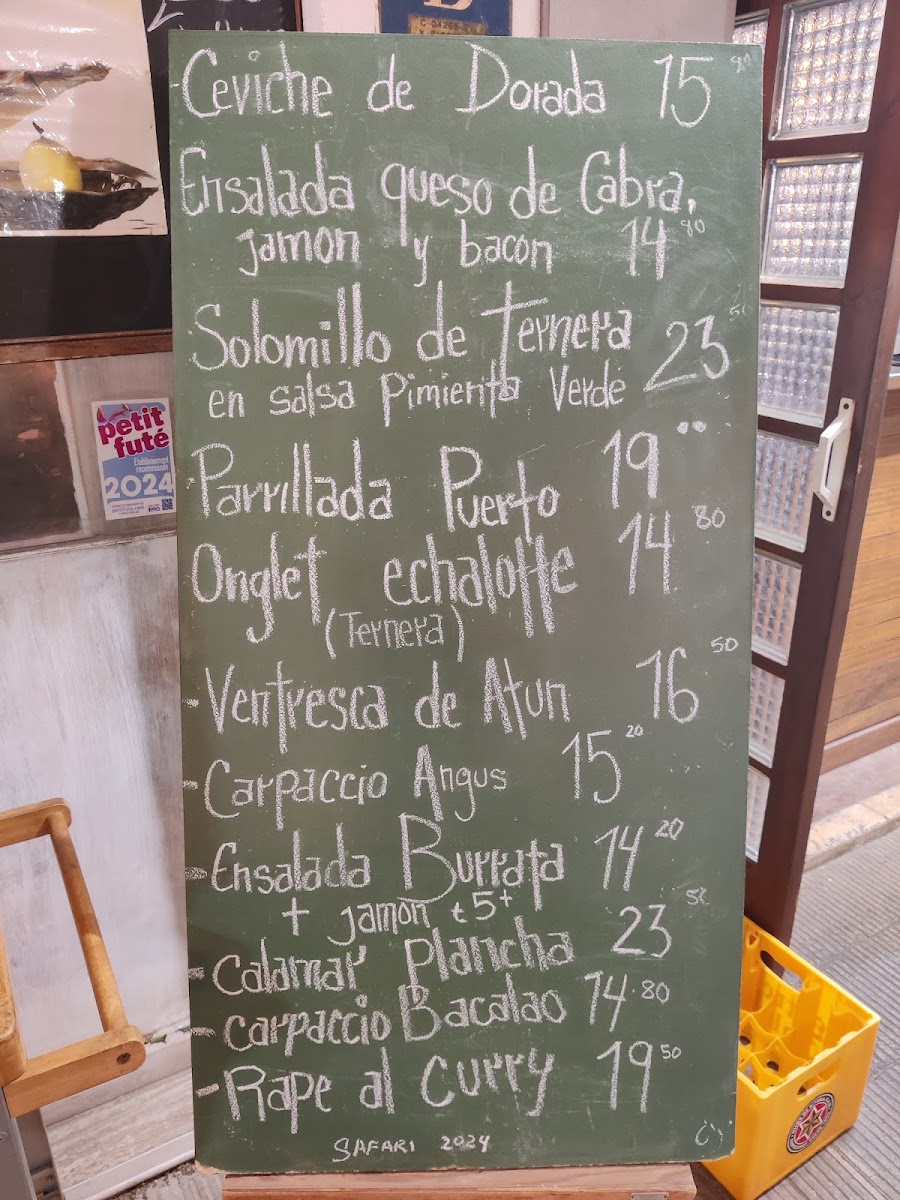 C-04255
Ceviche de Dorada 15
Ensalada queso de Cabra,
jamon y bacon 14 80
Solomillo de Ternera 23
en salsa Pimienta Verde
Parrillada Puerto 19 00
Onglet echalotte 14 80
(Ternera)
- Ventresca de Atun 16 50
- Carpaccio Angus 15 20
- Ensalada Burrata 14 20
+ jamon
- Calamar Plancha 23
- Carpaccio Bacalao 14.80
- Rape al Curry 19 50
SAFARI 2024
petit
futé
2024